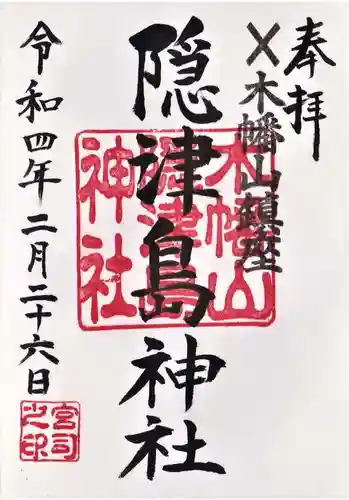 奉拝
×木幡山鎮座
隠津島神社
木幡山
隠津島
神社
令和四年二月二十六日
宮司
之印